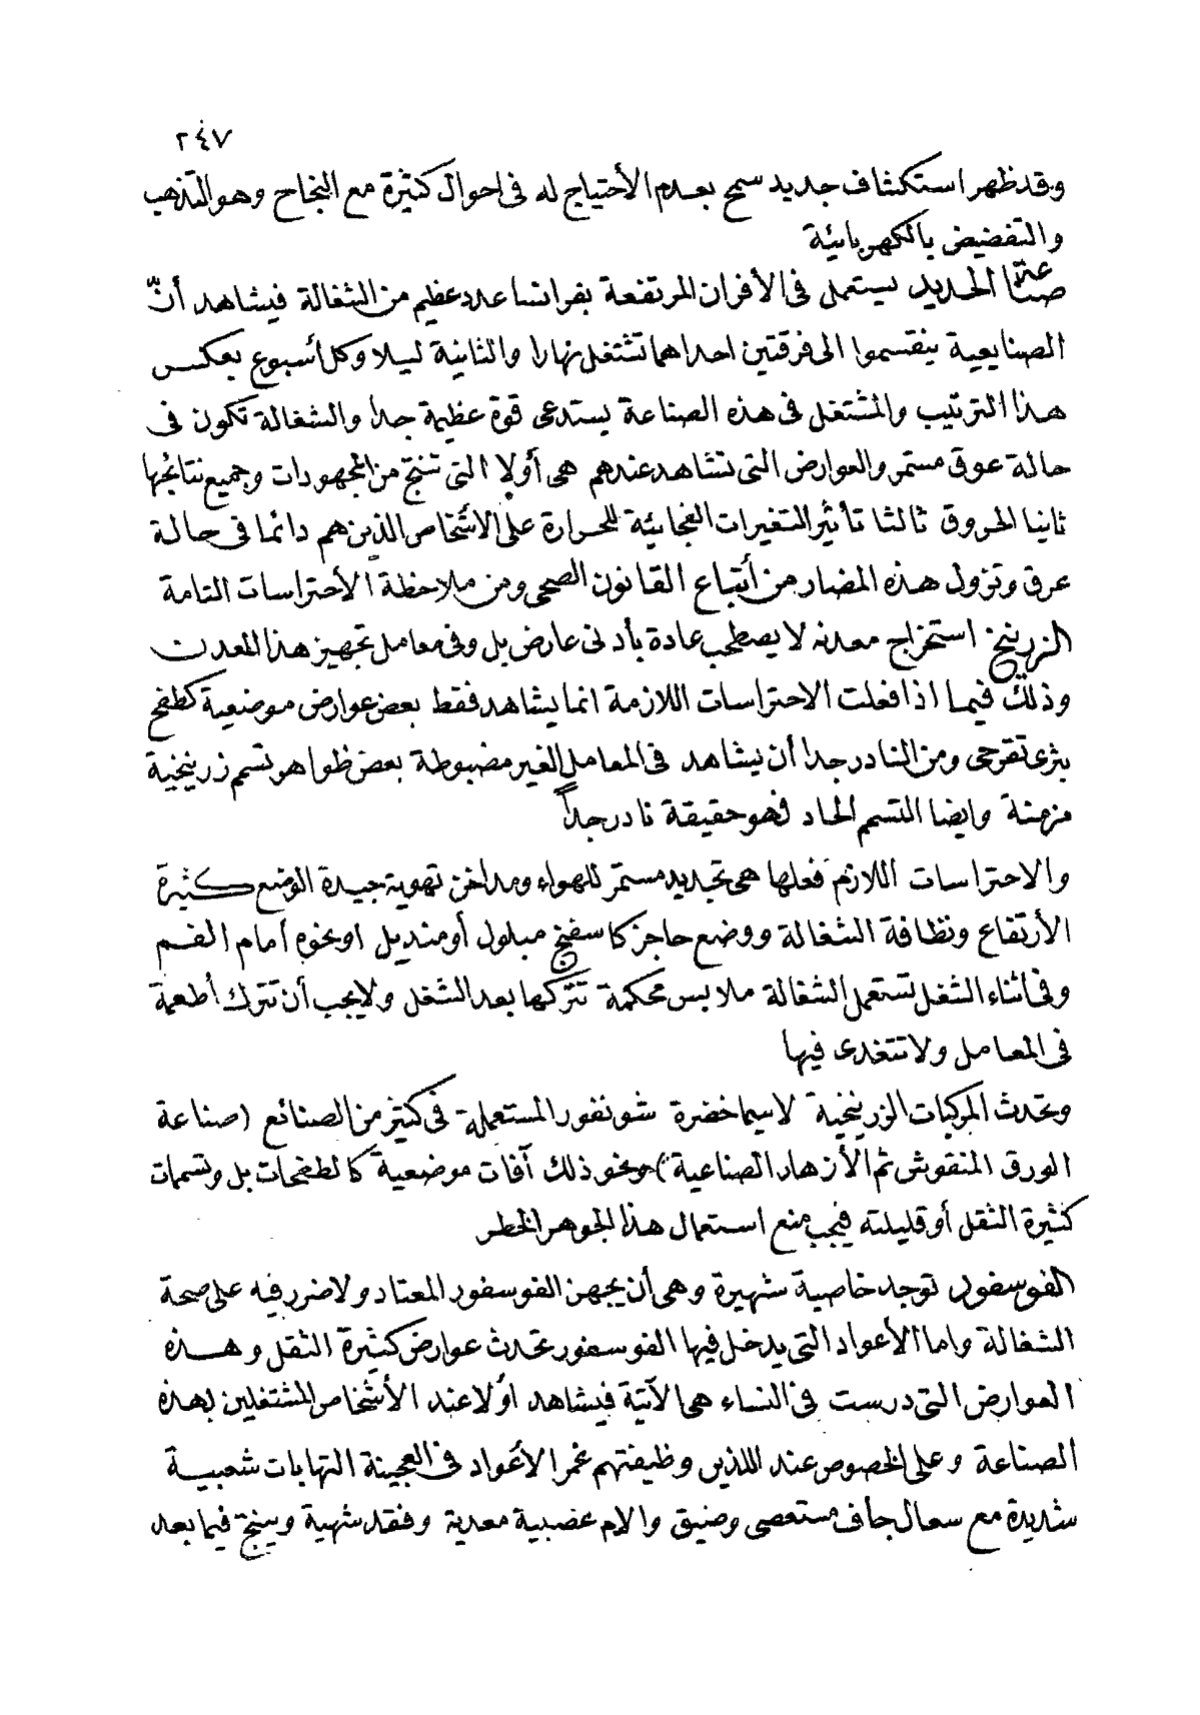 ٢٤٧
وقد ظهر استكشاف جديد سمح بعدم الأحتياج له فى احوال كثيرة مع النجاح وهو التذهب
والتفضيض بالكهربائية
صناعة الحديد يستعمل فى الأفران المرتفعة بفرانسا عدد عظيم من الشغالة فيشاهد أنّ
الصنايعية ينقسموا الى فرقتين احداهما تشتغل نهارا والثانية ليلا وكل أسبوع بعكس
هذا الترتيب والمشتغل فى هذه الصناعة يستدعى قوة عظيمة جدا والشغالة تكون فى
حالة عرق مستمر والعوارض التى تشاهد عندهم هى أولا التى تنتج من المجهودات وجميع نتائجها
ثانيا الحروق ثالثا تأثير التغيرات الفجائية للحرارة على الأشخاص الذين هم دائما فى حالة
عرق وتزول هذه المضار من أتباع القانون الصحى ومن ملاحظة الأحتراسات التامة
الزرنيخ استخراج معدنه لا يصطحب عادة بأدنى عارض بل وفى معامل تجهيز هذا المعدن
وذلك فيما اذا فعلت الاحتراسات اللازمة انما يشاهد فقط بعض عوارض موضعية كطفح
بثرى تقرحى ومن النادر جدا أن يشاهد فى المعامل الغير مضبوطة بعض ظواهر تسمم زرنيخية
مزمنة وايضا التسمم الحاد فهو حقيقة نادر جداً
والاحتراسات اللازم فعلها هى تجديد مستمر للهواء ومداخن تهوية جيدة الوضع كثيرة
الأرتفاع ونظافة الشغالة ووضع حاجز كاسفنج مبلول أو منديل او نحوه أمام الفم
وفى اثناء الشغل تستعمل الشغالة ملابس محكمة تتركها بعد الشغل ولا يجب أن تترك أطعمة
فى المعامل ولا تتغدى فيها
وتحدث المركبات الزرنيخية لاسيما خضرة شونفور المستعملة فى كثير من الصنائع (صناعة
الورق المنقوش ثم الأزهار الصناعية) ونحو ذلك آفات موضعية كالطفحات بل وتسممات
كثيرة الثقل أو قليلته فيجب منع استعمال هذا الجوهر الخطر
الفوسفور توجد خاصية شهيرة وهى أن يجهز الفوسفور المعتاد ولا ضرر فيه على صحة
الشغالة واما الأعواد التى يدخل فيها الفوسفور تحدث عوارض كثيرة الثقل وهذه
العوارض التى درست فى النساء هى الآتية فيشاهد أولا عند الأشخاص المشتغلين بهذه
الصناعة وعلى الخصوص عند اللذين وظيفتهم غمر الأعواد فى العجينة التهابات شعبية
شديدة مع سعال جاف مستعصى وضيق والام عضبية معدية وفقد شهية وينتج فيما بعد